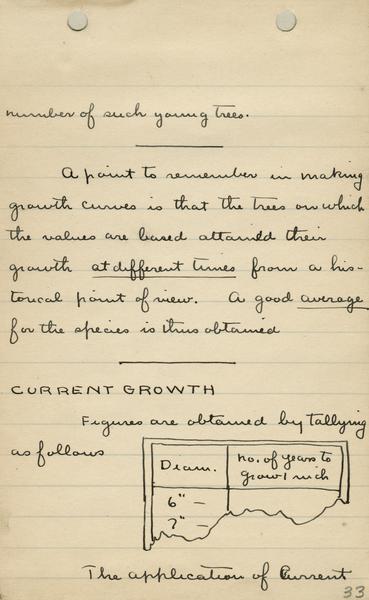 number of such young trees.
A point to remember in making
growth curves is that the trees on which
the values are based attained their
growth at different times from a his-
torical point of view. A good average
for the species is thus obtained
CURRENT GROWTH
Figures are obtained by tallying
as follows
Diam.
no. of years to
grow 1 inch
6" —
7" —
The application of Current
33